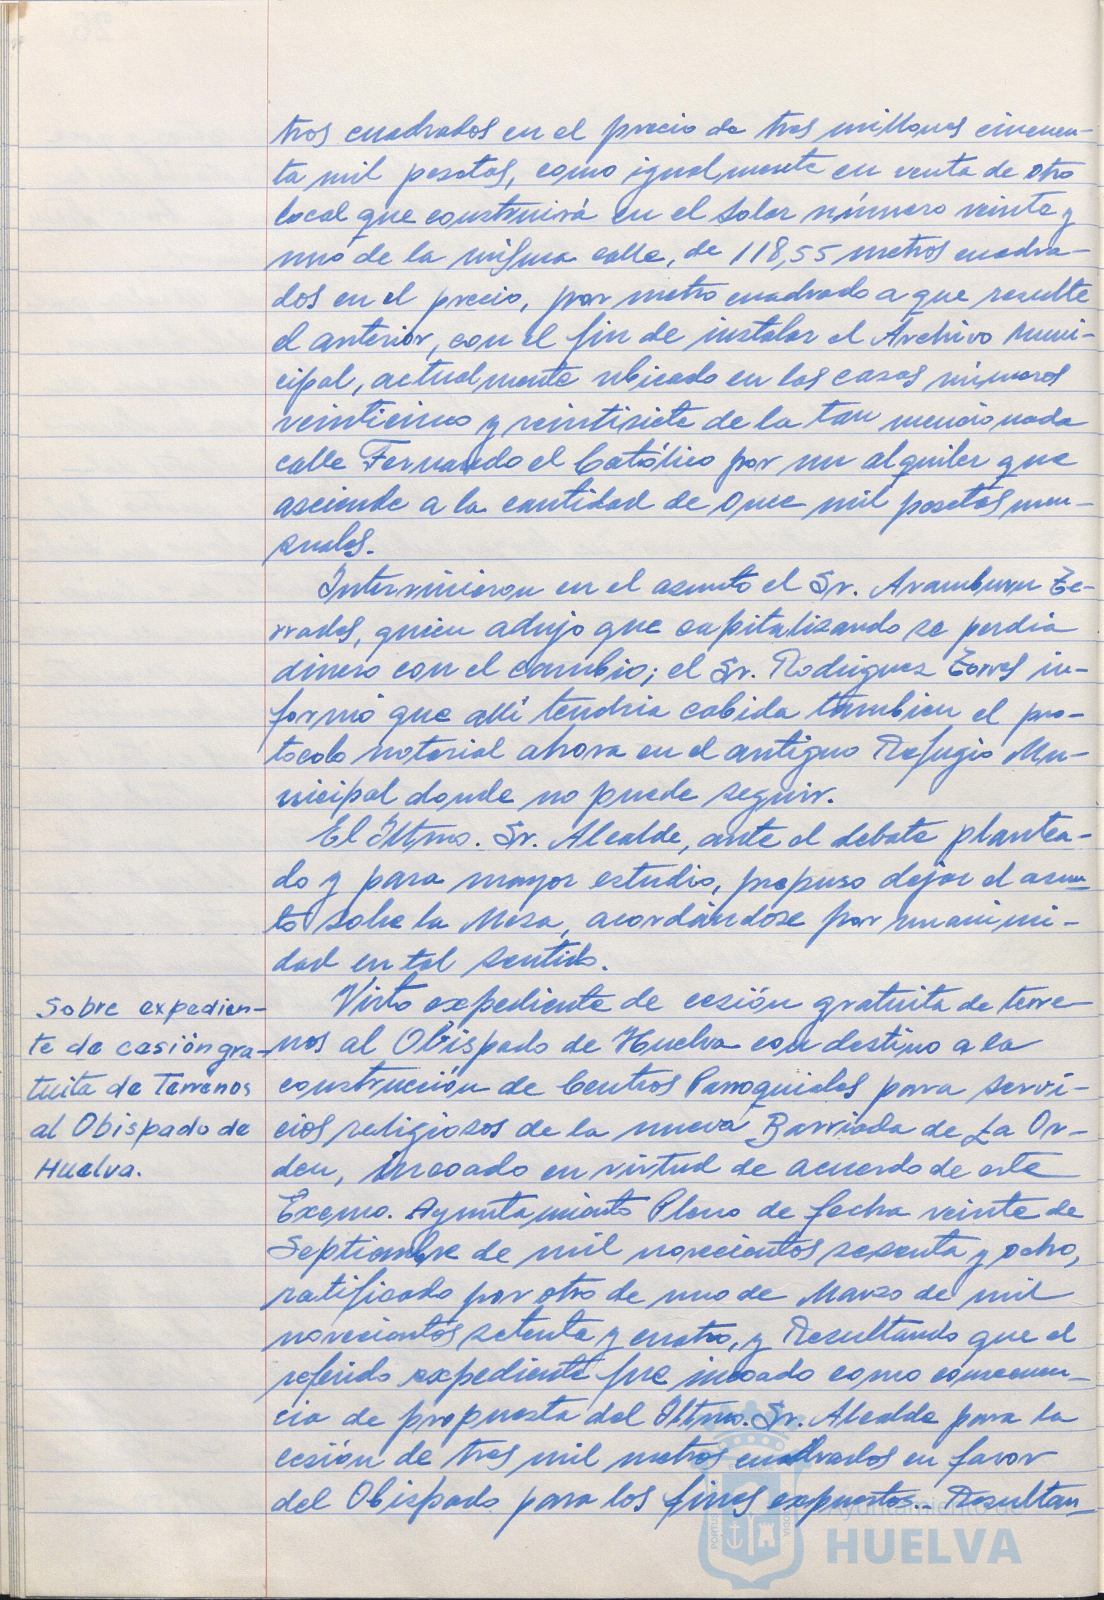 tros cuadrados en el precio de tres millones cincuen-
ta mil pesetas, como igualmente en venta de otro
local que construirá en el solar número veinte y
uno de la misma calle, de 118,55 metros cuadra-
dos en el precio, por metro cuadrado a que resulte
el anterior, con el fin de instalar el Archivo Muni-
cipal, actualmente ubicado en las casas números
veinticinco y veintisiete de la tan mencionada
calle Fernando el Católico por un alquiler que
asciende a la cantidad de once mil pesetas men-
suales.
Intervinieron en el asunto el Sr. Aramburu Ze-
rrados, quien adujo que capitalizando se perdía
dinero con el cambio; el Sr. Rodriguez Torres in-
formó que allí tendria cabida tambien el pro-
tocolo notarial ahora en el antiguo Refugio Mu-
nicipal donde no puede seguir.
El Iltmo. Sr. Alcalde, ante el debate plantea-
do y para mayor estudio, propuso dejar el asun-
to sobre la Mesa, acordándose por unanimi-
dad en tal sentido.
Sobre expedien-
te de cesión gra-
tuita de Terrenos
al Obispado de
Huelva.
Visto expediente de cesión gratuita de terre-
nos al Obispado de Huelva con destino a la
construcción de Centros Parroquiales para servi-
cios religiosos de la nueva Barriada de La Or-
den, incoado en virtud de acuerdo de este
Excmo. Ayuntamiento Pleno de fecha veinte de
Septiembre de mil novecientos sesenta y ocho,
ratificado por otro de uno de Marzo de mil
novecientos setenta y cuatro, y Resultando que el
referido expediente fue incoado como consecuen-
cia de propuesta del Iltmo. Sr. Alcalde para la
cesión de tres mil metros cuadrados en favor
del Obispado para los fines expuestos.- Resultan-
Ayuntamiento de
HUELVA